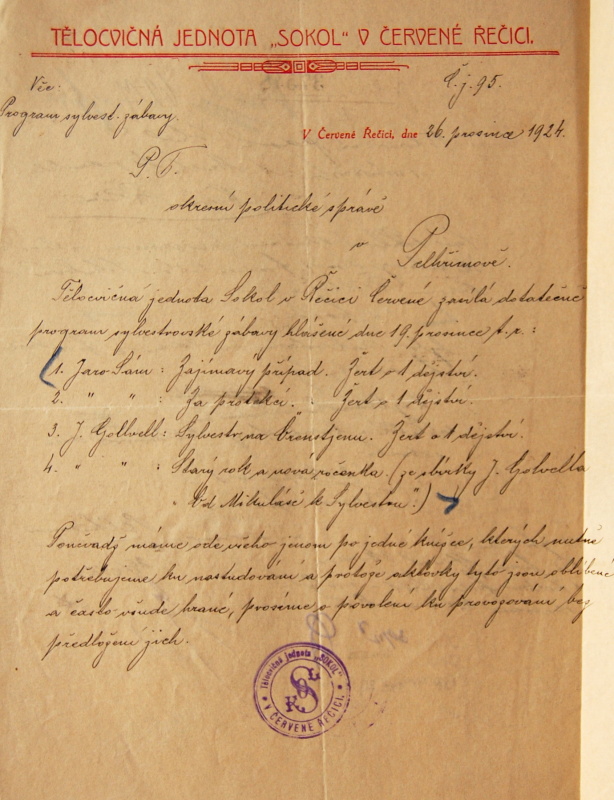 TĚLOCVIČNÁ JEDNOTA „SOKOL" V ČERVENÉ ŘEČICI.
Věc:
Č.j. 95.
Program sylvest. zábavy.
V Červené Řečici, dne 26. prosince 1924.
P. T.
okresní politické správě
v Pelhřimově.
Tělocvičná jednota Sokol v Řečici Červené zasílá dotatečně
program sylvestrovské zábavy hlášené dne 19. prosince t. r.:
1. Jaro Sám: Zajímavý případ. Žert o 1 dějství.
2. " " : Za protekcí. Žert o 1 dějství.
3. J. Gollwell: Sylvestr na Žert o 1 dějství.
4. " " : Starý rok a nová ročenka. (ze sbírky J. Golwella
„Od Mikuláše k Sylvestru".)
Poněvadž máme ode všeho jenom po jedné knížce, kterých nutně
potřebujeme ku nastudování a protože aktovky tyto jsou oblíbené
a často všude hrané, prosíme o povolení ku provozování bez
předložení jich.
Tělocvičná jednota „SOKOL"
V ČERVENÉ ŘEČICI.